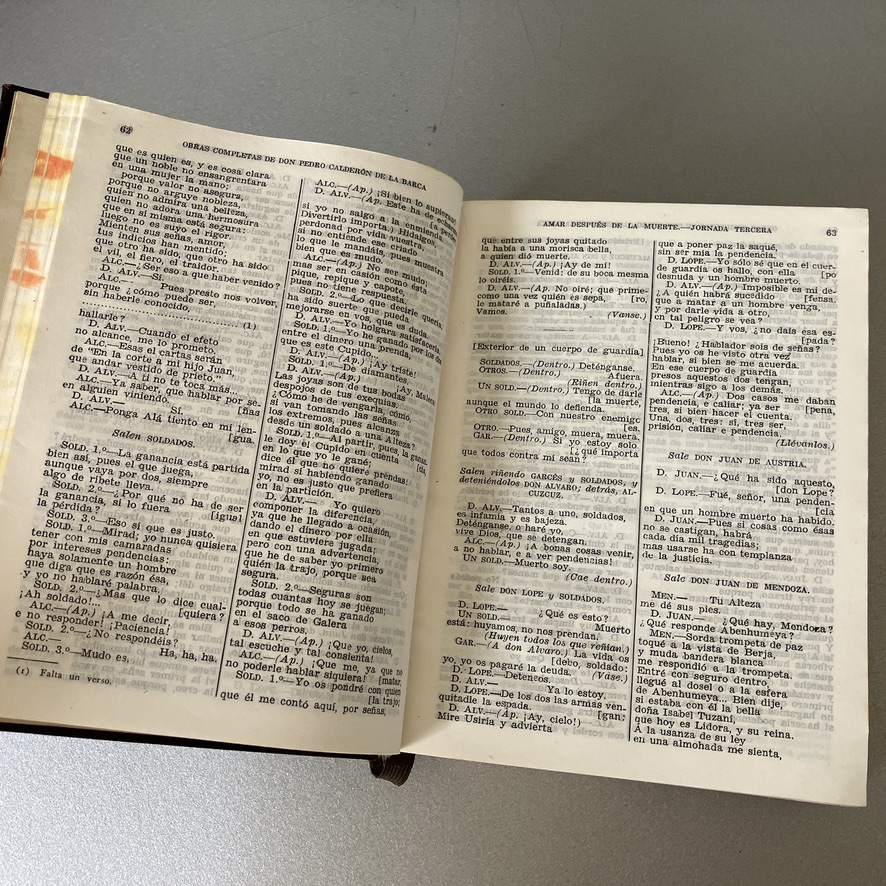 62
OBRAS COMPLETAS DE DON PEDRO CALDERÓN DE LA BARCA
que es quien es, y es cosa clara
que un noble no ensangrentara
en una mujer la mano;
porque valor no asegura,
porque no arguye nobleza,
quien no admira una belleza,
quien no adora una hermosura
que en sí misma está segura:
luego suyo es el rigor.
Mienten sus señas, amor,
tus indicios han mentido:
que otro ha sido, que otro ha sido
el vil, el fiero, el traidor.
ALC.—¿Ser eso a que haber venido?
D. ALV.—Sí.
ALC.— Pues presto nos volver,
porque ¿cómo puede ser,
sin haberle conocido,
(1)
hallarle?
D. ALV.—Cuando el efeto
no alcance, me lo prometo.
ALC.—Esas el cartas serán
de "En la corte a mi hijo Juan,
que andar vestido de prieto."
D. ALV.—A ti no te toca más...
ALC.—Ya saber, que hablar por se-
en alguien viniendo. [ñas
D. ALV.— Sí.
ALC.—Ponga Alá tiento en mi len-
[gua.
Salen SOLDADOS.
SOLD. 1.º—La ganancia está partida
bien así, pues el que juega,
aunque vaya por dos, siempre
algo de ribete lleva.
SOLD. 2.º—¿Por qué no ha de ser
la ganancia, si lo fuera [igual
la pérdida?
SOLD. 3.º—Eso sí que es justo.
SOLD. 1.º—Mirad; yo nunca quisiera
tener con mis camaradas
por intereses pendencias;
haya solamente un hombre
que diga que es razón ésa,
y yo no hablaré palabra,
SOLD. 2.º—¿Mas que lo dice cual-
¡Ah soldado!... [quiera?
ALC.—(Ap.) ¡A me decir,
e no responder! ¡Paciencia!
SOLD. 2.º—¿No respondéis?
ALC.— Ha, ha, ha.
SOLD. 3.º—Mudo es,
(1) Falta un verso.
ALC.—(Ap.) ¡Si bien lo supieran!
D. ALV.—(Ap. Este ha de echarme
si yo no salgo a la enmienda.
Divertirlo importa.) Hidalgos,
perdonad por vida vuestra,
si no entiende ese criado
lo que le mandáis, pues muestra
bien que es mudo.
ALC.—(Ap.) No ser mudo;
mas ser en casos como ésta
pique, repique y capote,
pues no tiene respuesta.
SOLD. 2.º—Lo que decirle quería,
ha sido suerte que pueda
mejorarse en vos, que es duda.
D. ALV.—Yo holgara satisfacerla.
SOLD. 1.º—Yo he ganado por los dos
entre el dinero una prenda,
que es este Cupido...
D. ALV.—(Ap.) ¡Ay triste!
SOLD. 1.º—De diamantes.
D. ALV.—(Ap.) ¡Ay, Maleca!
Las joyas son de tus bodas
despojos de tus exequias.
¿Cómo he de vengarla, cómo,
si van tomando las señas
los extremos, pues alcanza
desde un soldado a una Alteza?
SOLD. 1.º—Al partir, pues, la ganan-
le doy el Cupido en cuenta [cia,
en lo que yo le gané;
dice él que no quiere prendas:
mirad si habiendo ganado
yo, no es justo que prefiera
en la partición.
D. ALV.— Yo quiero
componer la diferencia,
ya que he llegado a ocasión,
dando el dinero por ella
en que estuviere jugada;
pero con una advertencia,
que he de saber yo primero
quién la trajo, porque sea
segura.
SOLD. 2.º—Seguras son
todas cuantas hoy se juegan;
porque todo se ha ganado
en el saco de Galera
a esos perros.
D. ALV.—(Ap.) ¡Que yo, cielos,
tal escuche y tal consienta!
ALC.—(Ap.) ¡Que me, ya que no
no poderle hablar siquiera! [matar,
SOLD. 1.º—Yo os pondré con quien
[la trajo;
que él me contó aquí, por señas,
AMAR DESPUÉS DE LA MUERTE.—JORNADA TERCERA
63
que entre sus joyas quitado
la había a una morisca bella,
a quien dió muerte.
D. ALV.—(Ap.) ¡Ay de mí!
SOLD. 1.º—Venid: de su boca mesma
lo oiréis.
D. ALV.—(Ap. No oiré; que prime-
como una vez quién es sepa, [ro,
le mataré a puñaladas.)
Vamos. (Vanse.)
[Exterior de un cuerpo de guardia]
SOLDADOS.—(Dentro.) Deténganse.
OTROS.—(Dentro.) Afuera.
(Riñen dentro.)
UN SOLD.—(Dentro.) Tengo de darle
[la muerte,
aunque el mundo lo defienda.
OTRO SOLD.—Con nuestro enemigo
[es.
OTRO.—Pues, amigo, muera, muera.
GAR.—(Dentro.) Si yo estoy solo
[¿qué importa
que todos contra mí sean?
Salen riñendo GARCÉS y SOLDADOS, y
deteniéndolos DON ALVARO; detrás, AL-
CUZCUZ.
D. ALV.—Tantos a uno, soldados,
es infamia y es bajeza.
Deténganse, o haré yo,
vive Dios, que se detengan.
ALC.—(Ap.) ¡A bonas cosas venir,
a no hablar, e a ver pendencias!
UN SOLD.—Muerto soy.
(Cae dentro.)
Sale DON LOPE y SOLDADOS.
D. LOPE.— ¿Qué es esto?
UN SOLD.— Muerto
está: huyamos, no nos prendan.
(Huyen todos los que reñían.)
GAR.—(A don Alvaro.) La vida os
[debo, soldado:
yo, yo os pagaré la deuda. (Vase.)
D. LOPE.—Deteneos.
D. ALV.— Ya lo estoy,
D. LOPE.—De los dos las armas ven-
quitadle la espada. [gan:
D. ALV.—(Ap. ¡Ay, cielo!)...
Mire Usiría y advierta
que a poner paz la saqué,
sin ser mía la pendencia.
D. LOPE.—Yo sólo sé que en el cuer-
de guardia os hallo, con ella [po
desnuda y un hombre muerto.
D. ALV.—(Ap.) Imposible es mi de-
¿A quién habrá sucedido [fensa.
que a matar a un hombre venga,
y por darle vida a otro,
en tal peligro se vea?
D. LOPE.—Y vos, ¿no dais esa es-
[pada?
¡Bueno! ¿Hablador sois de señas?
Pues yo os he visto otra vez
hablar, si bien se me acuerda.
En ese cuerpo de guardia,
presos aquestos dos tengan,
mientras sigo a los demás.
ALC.—(Ap.) Dos casos me daban
pendencia, e caliar; ya ser [pena,
tres, si bien hacer el cuenta.
Una, dos, tres: sí, tres ser
prisión, caliar e pendencia.
(Llévanlos.)
Sale DON JUAN DE AUSTRIA.
D. JUAN.—¿Qué ha sido aquesto,
[don Lope?
D. LOPE.—Fué, señor, una penden-
[cia
en que un hombre muerto ha habido.
D. JUAN.—Pues si cosas como ésas
se castigan, habrá
cada día mil tragedias;
mas usarse ha con templanza
de la justicia.
Sale DON JUAN DE MENDOZA.
MEN.— Tu Alteza
me dé sus pies.
D. JUAN.— ¿Qué hay, Mendoza?
¿Qué responde Abenhumeya?
MEN.—Sorda trompeta de paz
toqué a la vista de Berja,
y muda bandera blanca
me respondió a la trompeta.
Entré con seguro dentro,
llegué al dosel o a la esfera
de Abenhumeya... Bien dije,
si estaba con él la bella
doña Isabel Tuzaní,
que hoy es Lidora, y su reina.
A la usanza de su ley
en una almohada me sienta,